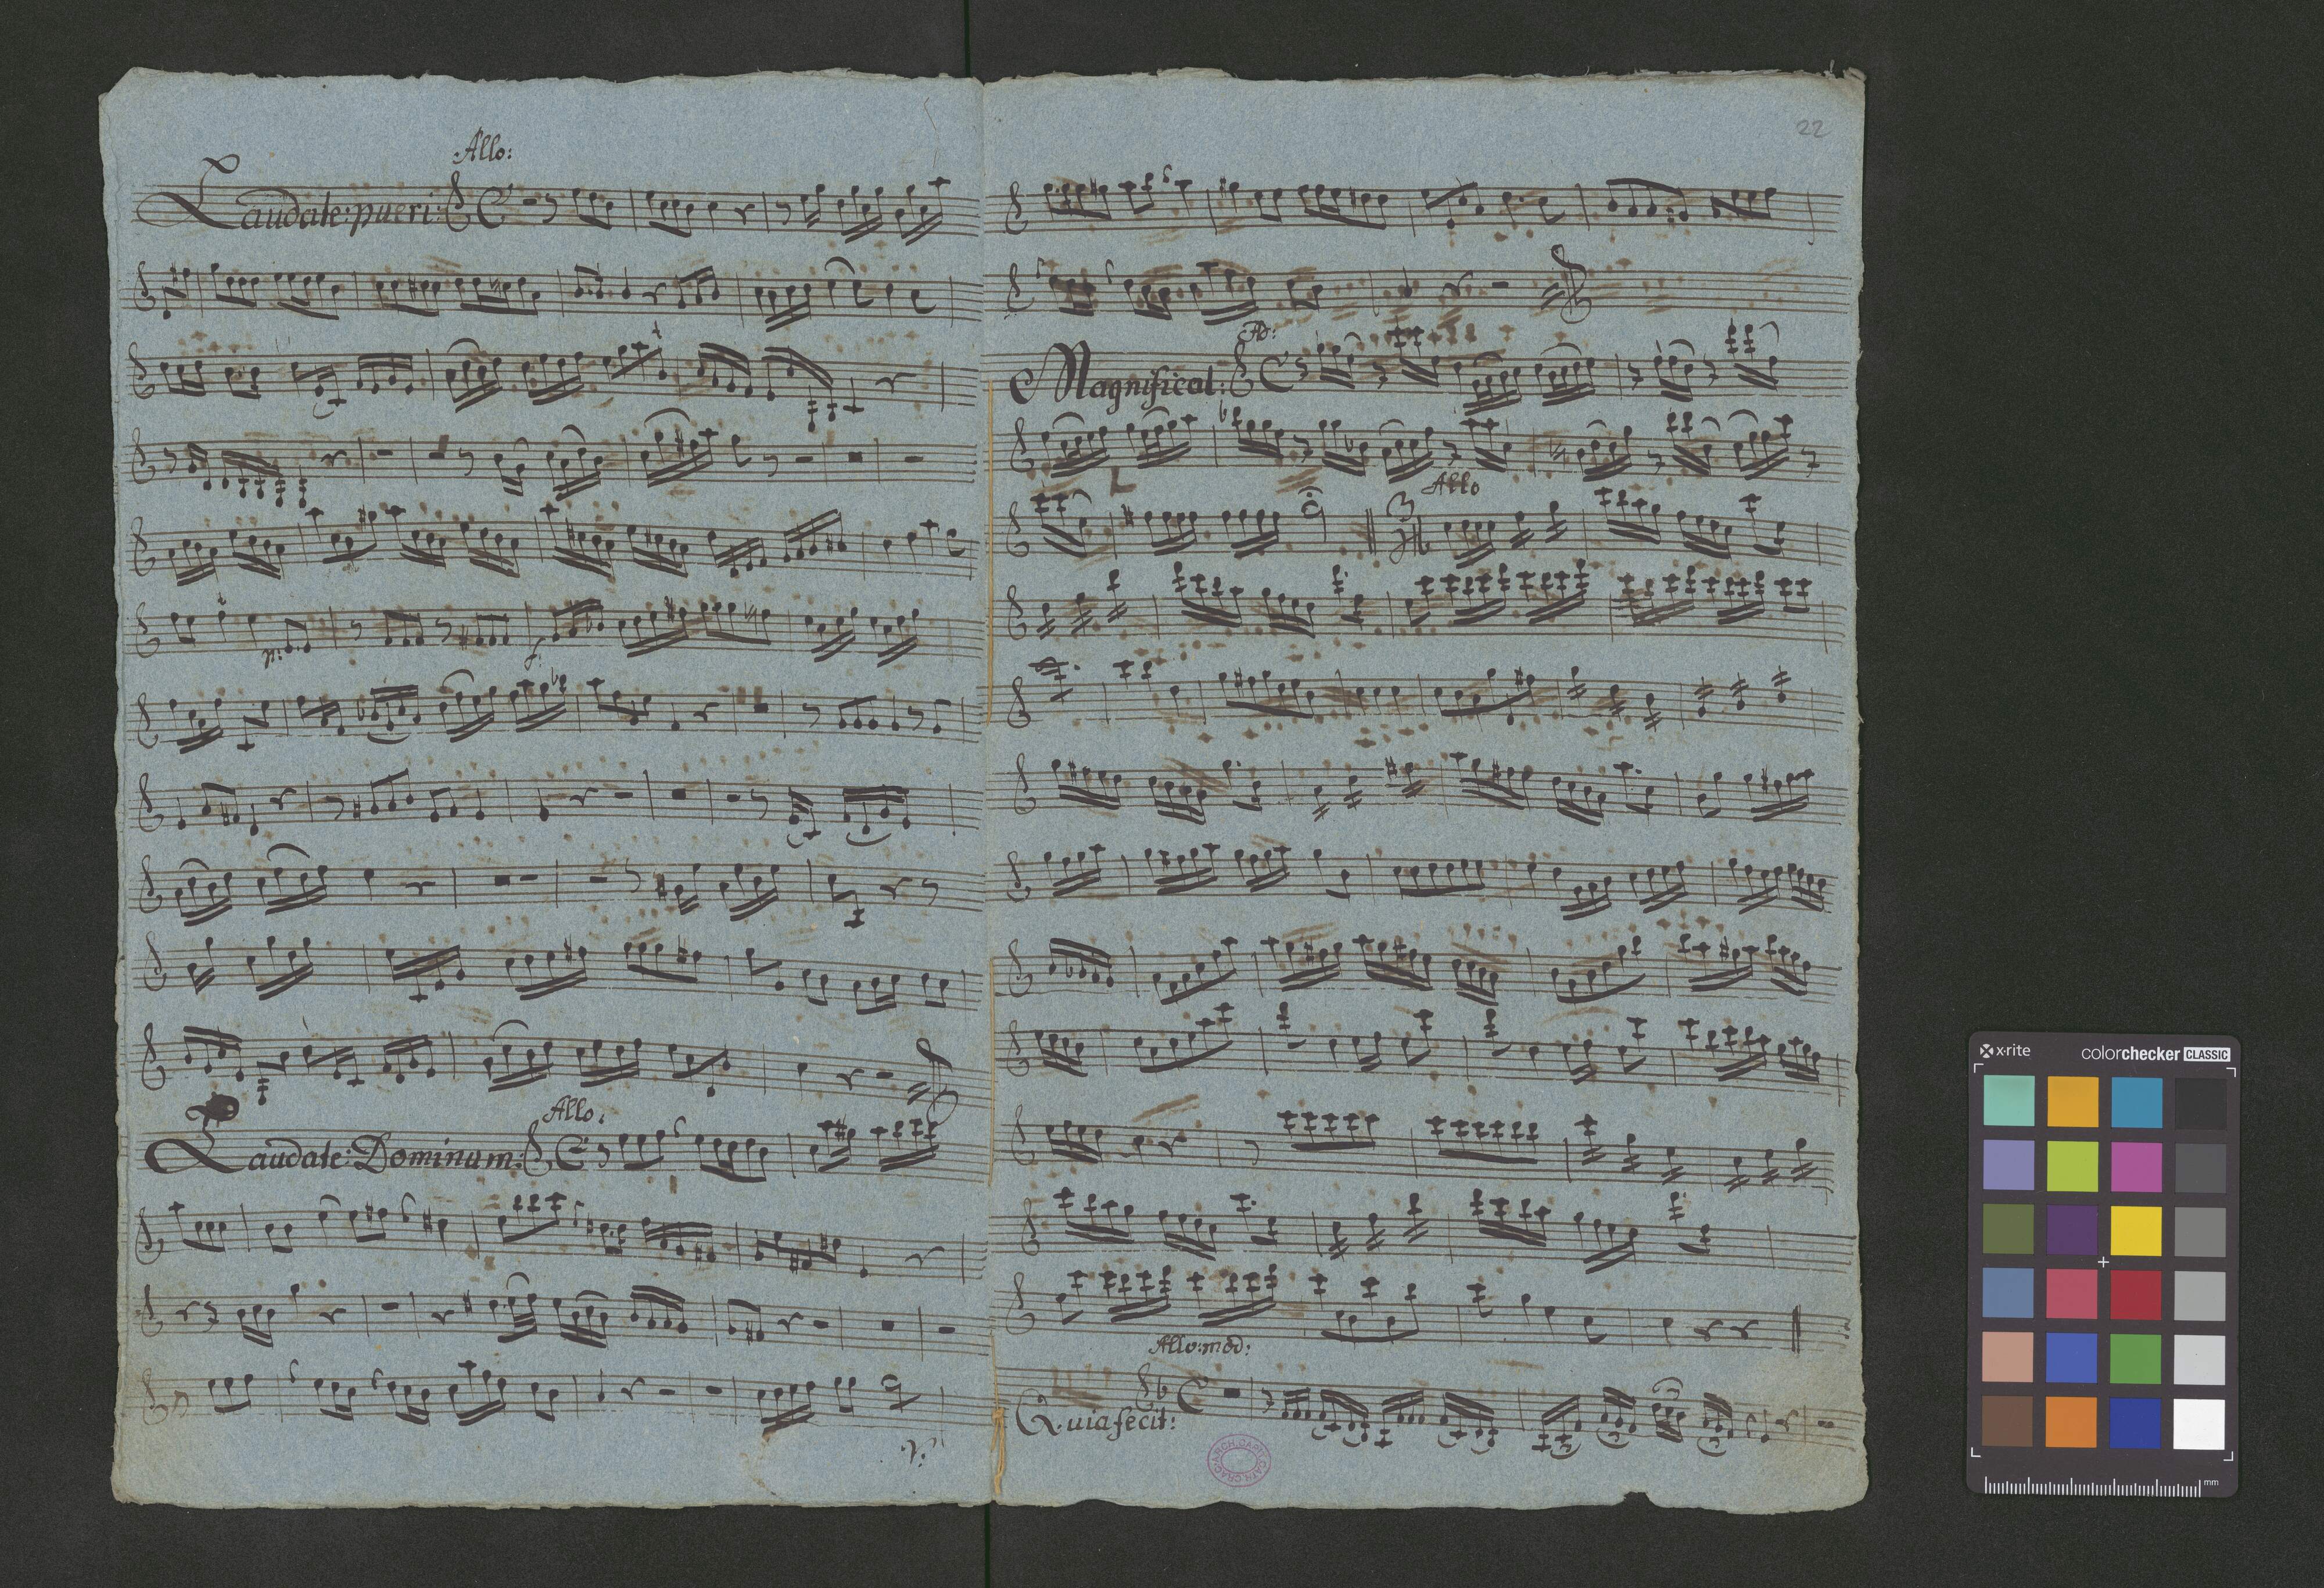 Allo:
Laudate: pueri:
p:
f:
Allo:
Laudate: Dominum:
V:
22
Ad:
Magnificat:
Allo
3
Allo: mod:
Quia fecit:
ARCH. CAPIT. CATH. CRAC.
x·rite colorchecker CLASSIC
mm